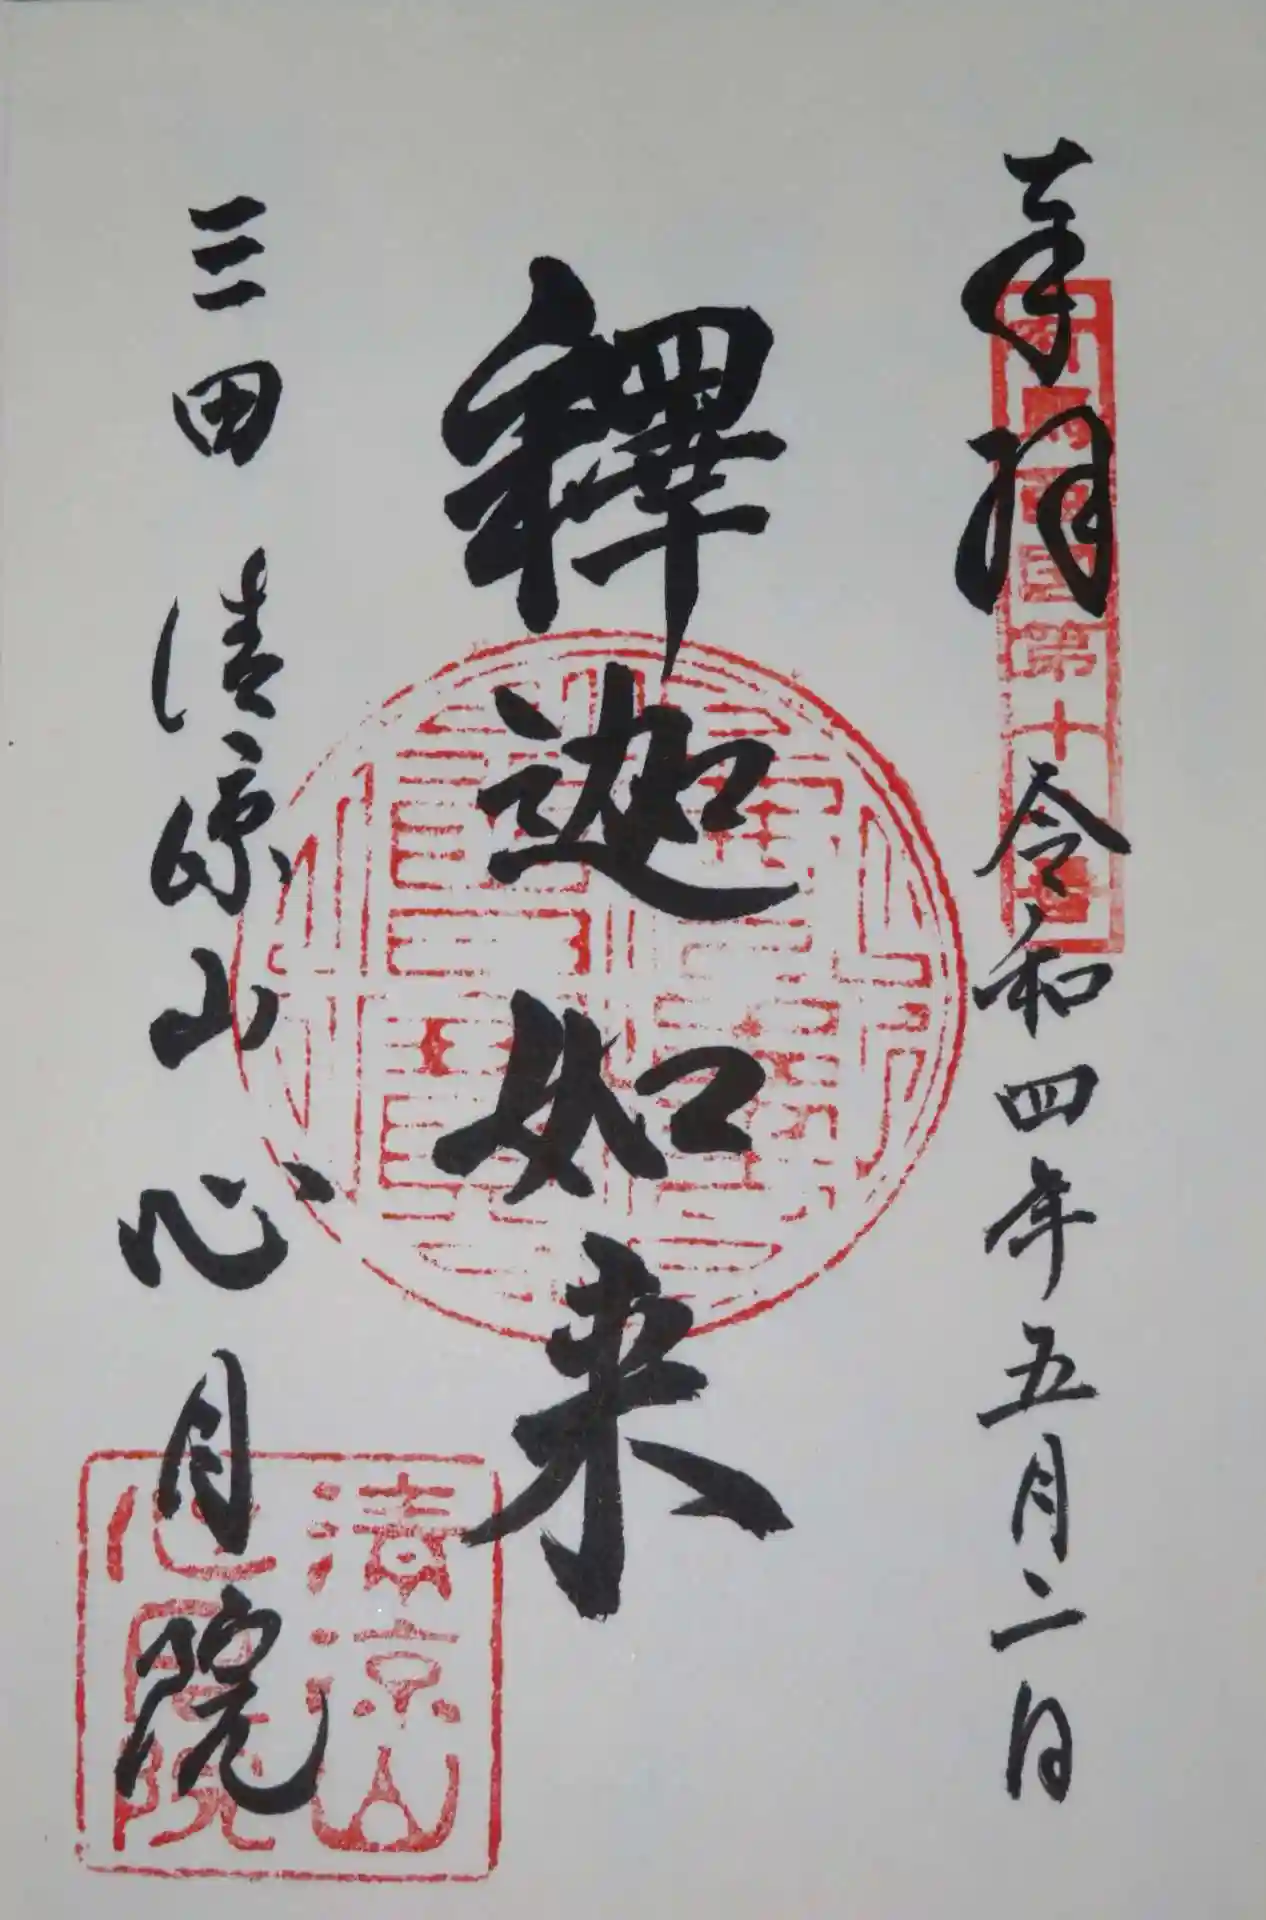 奉拝
令和四年五月二日
釋迦如来
三田 清涼山 心月院
馬西国第十
清涼山
心月院